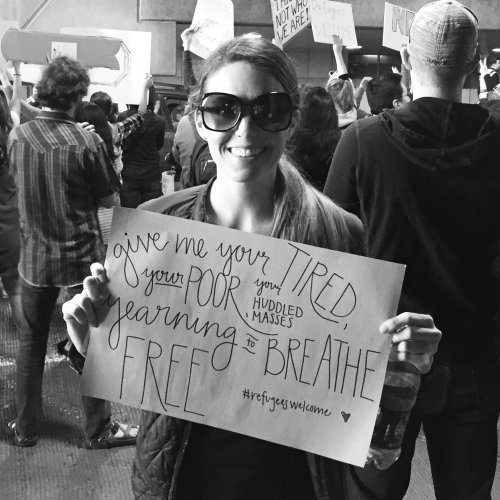 NOT WHO
WE ARE!
Refugees
give me your TIRED,
your POOR, your
HUDDLED
MASSES
yearning to BREATHE
FREE
#refugeeswelcome ♥